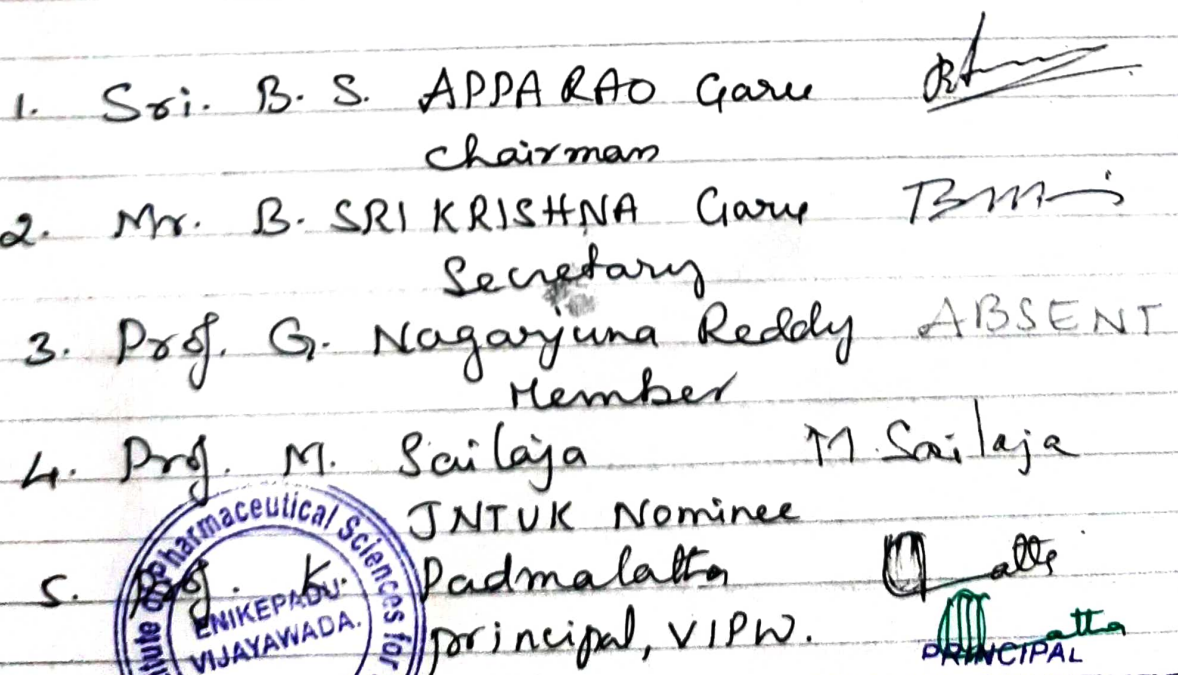 1. Sri. B. S. APPA RAO Garu
Chairman
2. Mr. B. SRI KRISHNA Garu
Secretary
3. Prof. G. Nagarjuna Reddy ABSENT
Member
4. Prof. M. Sailaja M. Sailaja
JNTUK Nominee
5. Prof. K. Padmalatha
principal, VIPW.
PRINCIPAL
Pharmaceutical Sciences for
ENIKEPADU
VIJAYAWADA.